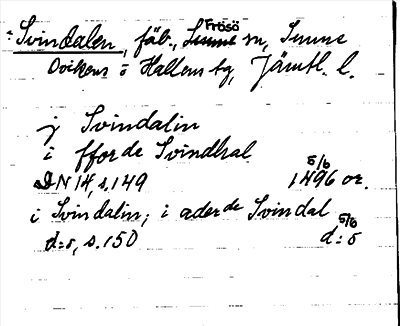 Svindalen, fäb., Frösö sn, Sunne
Ovikens o Hallens tg, Jämtl. l.
j Svindalin
i fforde Svindhal
DN 14, s. 149 5/6 1496 or.
i Svindalin; i aderde Svindal
d:o, s. 150 5/6 d:o